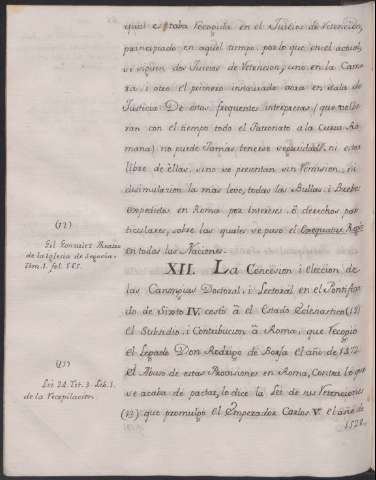 qual estaba recogida en el Juicio de Retencion,
principiado en aquel tiempo, por lo que en el actual,
se siguen dos Juicios de Retencion, uno en la Cama-
ra, i otro el primero instaurado acra en Sala de
Justicia. De estas frequentes interpresas (que roban
ran con el tiempo todo el Patronato a la Curia Ro-
mana) no puede Jamas, tenerse seguridad, ni estar
libre de ellas, sino se presentan sin remision, ni
disimulacion la mas leve, todas las Bullas i Brebes
expedidos en Roma por Intereses, ò derechos par-
ticulares, sobre las quales se puso el Exequatur Regio
en todas las Naciones.
XII. La Concesion i eleccion de
las Canongias Doctoral, i Lectoral en el Pontifica-
do de Sixto IV. costò à el Estado Eclesiastico (12)
el Subsidio, i Contribucion à Roma, que recogió
el Legado Don Rodrigo de Borja el año de 1472.
el Abuso de estas Provisiones en Roma, contra lo que
se acaba de pactar, lo dice la Lei de sus Retenciones
(13) que promulgò el Emperador Carlos V. el año de
1528.
(12)
Gil Gonzalez Theatro
de la Iglesia de Segovia.
Tom. 1. fol. 565.
(13)
Lei 24. Tit. 3. Lib. 1.
de la Recopilacion.